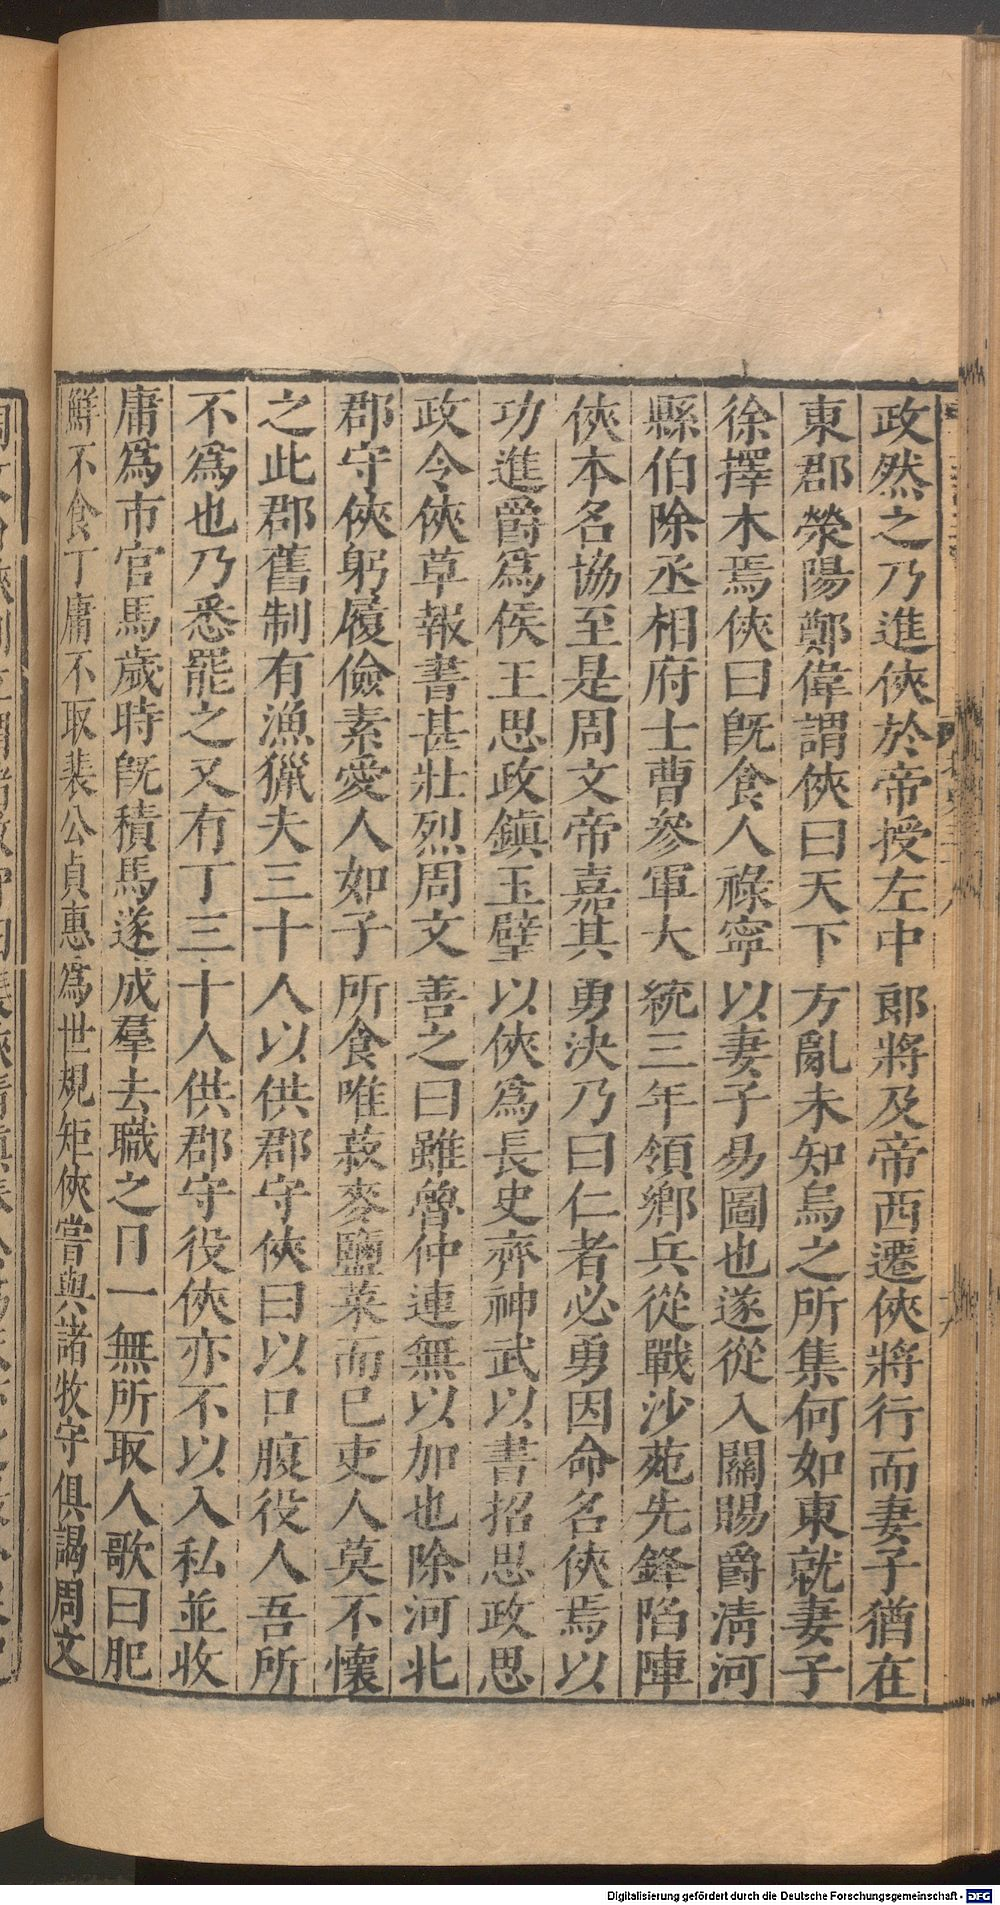 政然之乃進俠於帝授左中郎將及帝西遷俠將行而妻子猶在
東郡滎陽鄭偉謂俠曰天下方亂未知烏之所集何如東就妻子
徐擇木焉俠曰旣食人祿寧以妻子易圖也遂從入關賜爵清河
縣伯除丞相府士曹參軍大統三年領鄉兵從戰沙苑先鋒陷陣
俠本名協至是周文帝嘉其勇決乃曰仁者必勇因命名俠焉以
功進爵爲侯王思政鎮玉壁以俠爲長史齊神武以書招思政思
政令俠草報書甚壯烈周文善之曰雖魯仲連無以加也除河北
郡守俠躬履儉素愛人如子所食唯菽麥鹽菜而已吏人莫不懷
之此郡舊制有漁獵夫三十人以供郡守俠曰以口腹役人吾所
不爲也乃悉罷之又有丁三十人供郡守役俠亦不以入私並收
庸爲市官馬歲時旣積馬遂成羣去職之日一無所取人歌曰肥
鮮不食丁庸不取裴公貞惠爲世規矩俠嘗與諸牧守俱謁周文
Digitalisierung gefördert durch die Deutsche Forschungsgemeinschaft - DFG